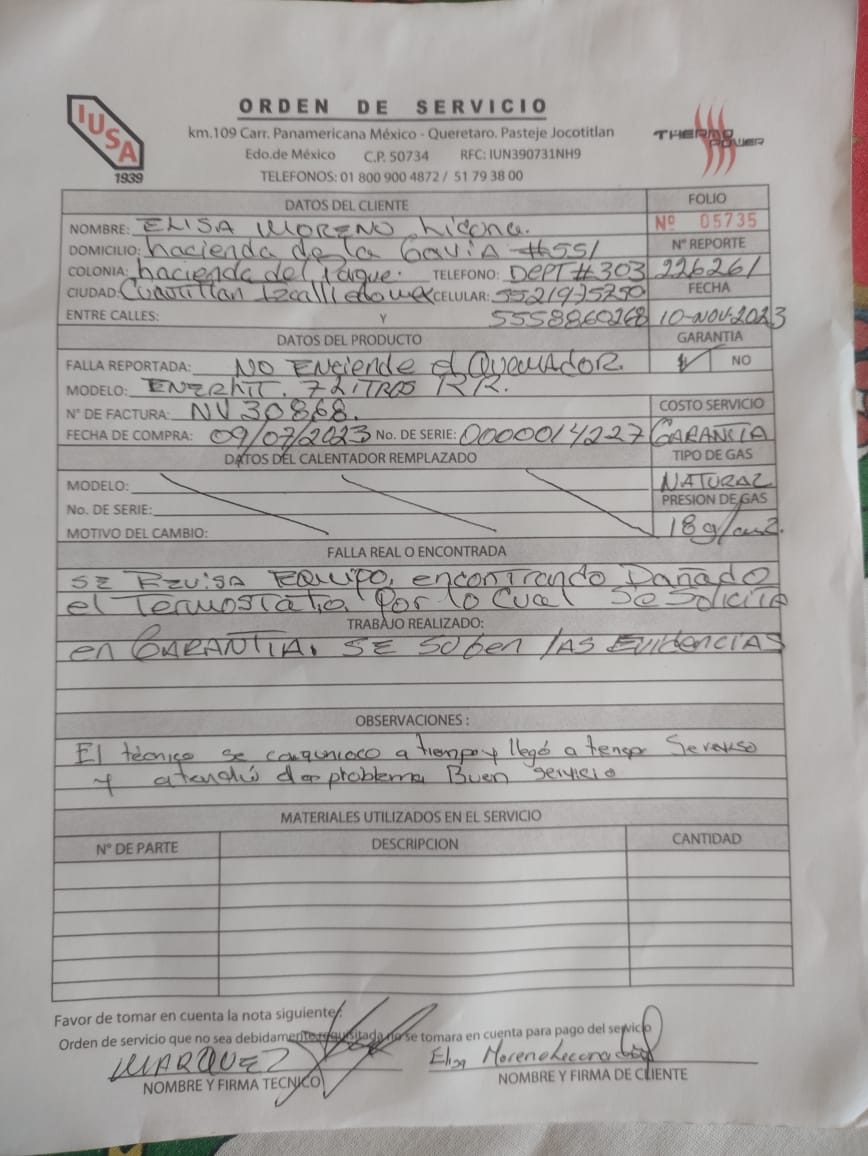 ORDEN DE SERVICIO
IUSA
1939
km.109 Carr. Panamericana México - Queretaro. Pasteje Jocotitlan
THERMO POWER
Edo.de México C.P. 50734 RFC: IUN390731NH9
TELEFONOS: 01 800 900 4872 / 51 79 38 00
DATOS DEL CLIENTE
FOLIO
Nº 05735
NOMBRE: ELISA MORENO
DOMICILIO: hacienda de la Gavia #551
Nº REPORTE
226261
COLONIA: hacienda del Parque. TELEFONO: DEPT # 303
FECHA
CIUDAD: Cuautitlan Izcalli Edomex CELULAR: 5521975250
ENTRE CALLES: Y 5558860268
10-NOV-2023
DATOS DEL PRODUCTO
GARANTIA
FALLA REPORTADA: NO Enciende el QUEMADOR.
NO
MODELO: ENERHIT. 7 LITROS RR.
Nº DE FACTURA: NV 30868.
COSTO SERVICIO
FECHA DE COMPRA: 09/07/2023 No. DE SERIE: 0000014227
GARANTIA
DATOS DEL CALENTADOR REMPLAZADO
TIPO DE GAS
MODELO:
NATURAL
No. DE SERIE:
PRESION DE GAS
MOTIVO DEL CAMBIO:
18 g/cm2.
FALLA REAL O ENCONTRADA
SE REVISA EQUIPO, encontrando Dañado
el Termostato, Por lo Cual Se Solicita
TRABAJO REALIZADO:
en GARANTIA. SE Suben LAS EVIDENCIAS
OBSERVACIONES :
El técnico se a tiempo y llegó a tempo
y atendió problema Buen servicio
MATERIALES UTILIZADOS EN EL SERVICIO
Nº DE PARTE DESCRIPCION CANTIDAD
Favor de tomar en cuenta la nota siguiente:
Orden de servicio que no sea debidamente requisitada no se tomara en cuenta para pago del servicio
MARQUEZ
NOMBRE Y FIRMA TECNICO
Elisa Moreno
NOMBRE Y FIRMA DE CLIENTE